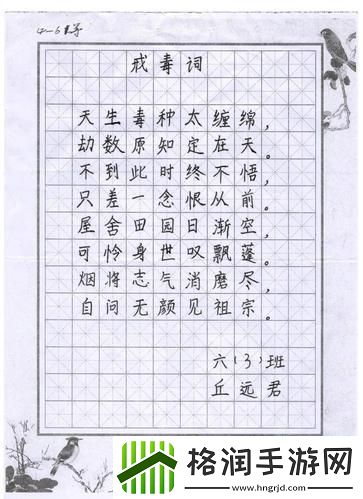 戒毒词
天生毒种太缠绵，
劫数原知定在天。
不到此时终不悟，
只差一念恨从前。
屋舍田园日渐空，
可怜身世叹飘蓬。
烟将志气消磨尽，
自问无颜见祖宗。
六（3）班
丘远君
格润手游网
www.hngrjd.com